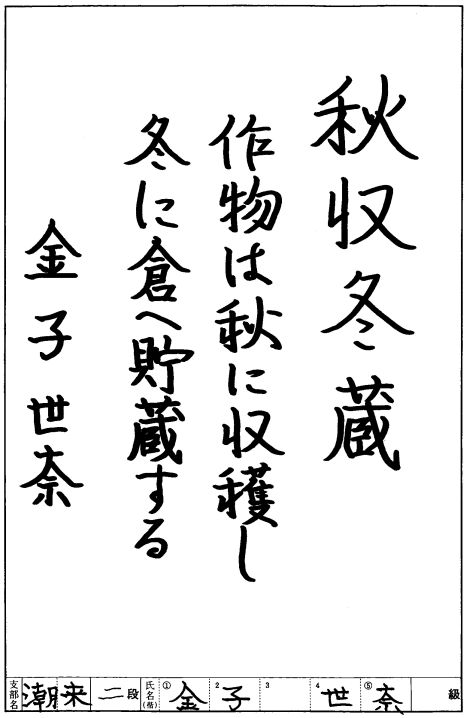 秋収冬蔵
作物は秋に収穫し
冬に倉へ貯蔵する
金子世奈
支部名 潮来 二段 氏名(楷) ① 金 2 子 3 4 世 ⑤ 奈 級